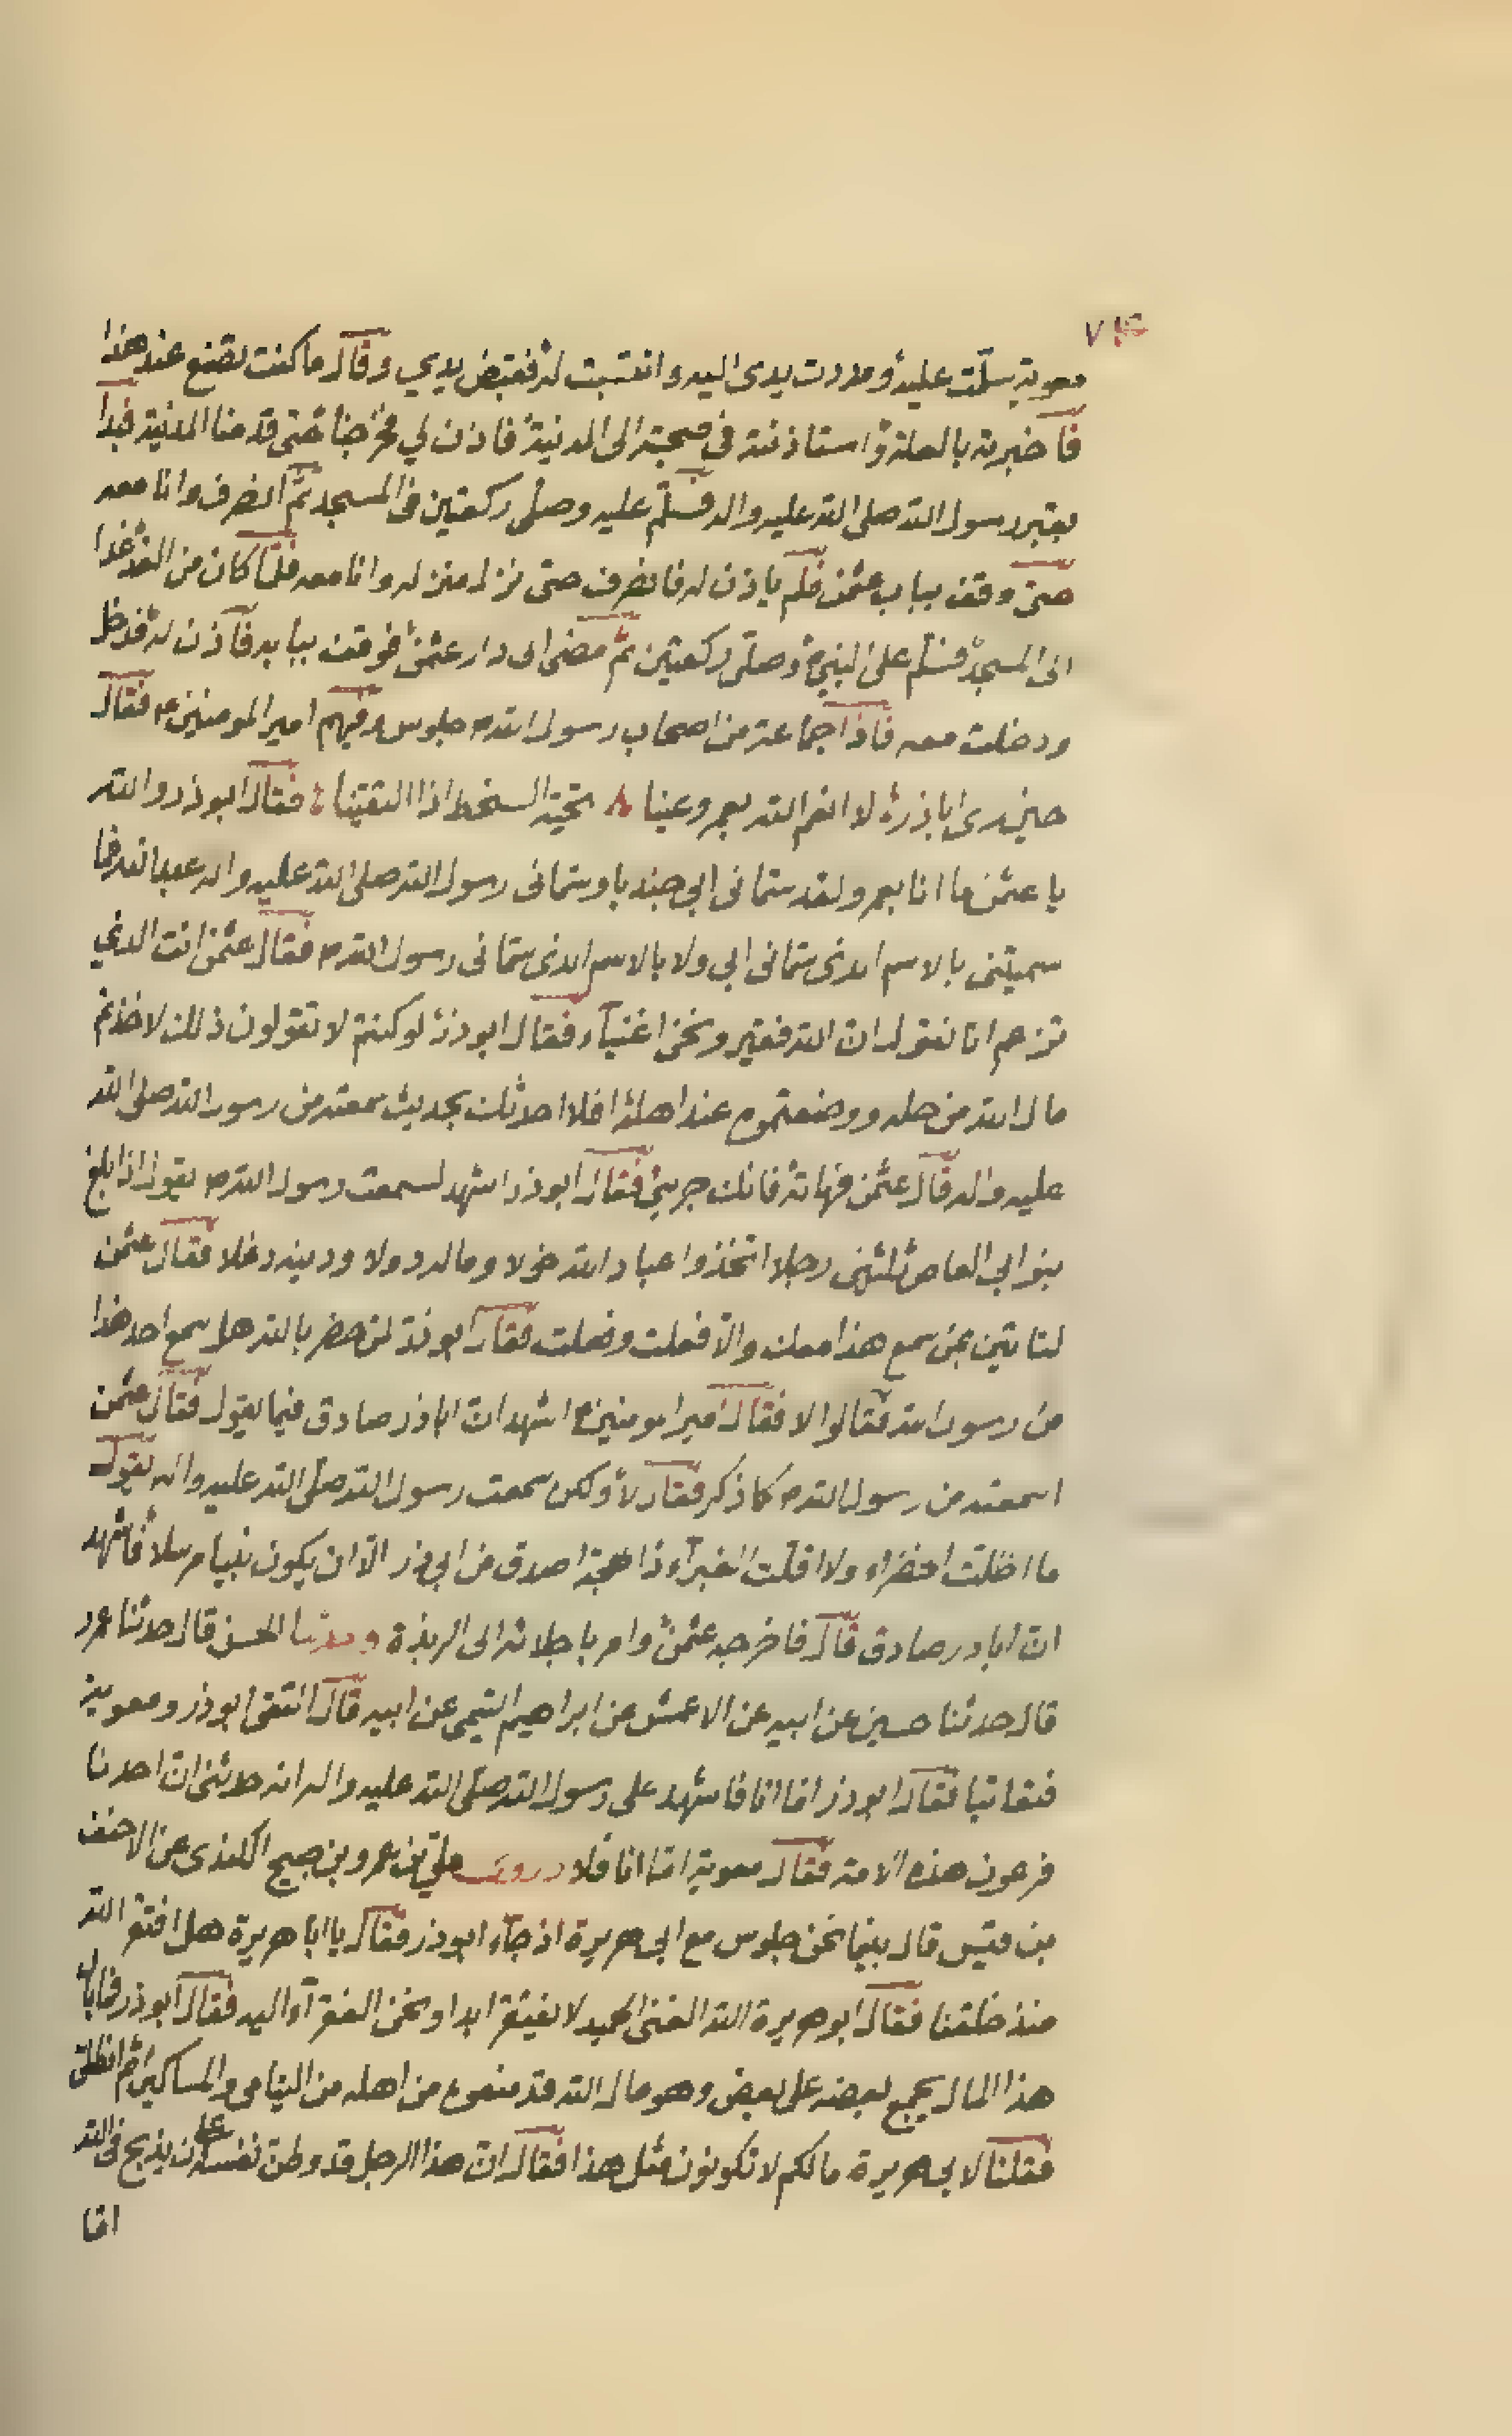 ٧١٣
معوية سلّمت عليه ومددت يدى اليه وانتسبت له فقبض يدي وقال ما كنت تصنع عند هذا
فاخبرته بالعلة واستاذنته فى صحبته الى المدينة فاذن لي فخرجنا حتى قدمنا المدينة فبدا
بقبر رسول الله صلى الله عليه واله فسلّم عليه وصلّى ركعتين فى المسجد ثمّ انصرف وانا معه
حتى وقف بباب عثمن فلم ياذن له فانصرف حتى نزل منزله وانا معه فلمّا كان من الغد غدا
الى المسجد فسلّم على النبي وصلّى ركعتين ثمّ مضى الى دار عثمن فوقف ببابه فآذن له فدخل
ودخلت معه فاذا جماعة من اصحاب رسول الله م جلوس وفيهم امير المومنين ع فقال
حين راى اباذر لا انعم الله بعمرو عينا تحية السخط اذا التقينا فقال ابوذر والله
يا عثمن ما انا بعمرو لقد سمّانى ابي جندبا وسمّانى رسول الله صلى الله عليه واله عبدالله فما
سميتنى بالاسم الذى سمّانى ابي ولا بالاسم الذى سمّانى رسول الله م فقال عثمن انت الذي
تزعم انا نقول انّ الله فقير ونحن اغنيآء فقال ابوذر لو كنتم لا تقولون ذلك لاخذتم
مال الله من حله ووضعتموه عند اهله افلا احدثك بحديث سمعته من رسول الله صلى الله
عليه واله قال عثمن فهاته فانك جريئ فقال ابوذر اشهد لسمعت رسول الله م يقول اذا بلغ
بنو ابي العاص ثلثين رجلا اتخذوا عباد الله خولا وماله دولا ودينه دغلا فقال عثمن
لتاتين بمن سمع هذا معك والّا فعلت وفعلت فقال ابوذر لمن حضر بالله هل سمع احد هذا
من رسول الله فقالوا لا فقال امير المومنين ع اشهد انّ اباذر صادق فيما يقول فقال عثمن
اسمعته من رسول الله م كما ذكر فقال لا ولكن سمعت رسول الله صلّى الله عليه واله يقول
ما اظلّت الخضراء ولا اقلّت الغبرآء ذا لهجة اصدق من ابي ذر الّا ان يكون نبيا مرسلا فاشهد
انّ اباذر صادق قال فاخرجه عثمن وامر باجلائه الى الربذة وحدثنا الحسن قال حدثنا عمرو
قال حدثنا حسين عن ابيه عن الاعمش عن ابراهيم التيمى عن ابيه قال التقى ابوذر ومعوية
فتعاتبا فقال ابوذر امّا انا فاشهد على رسول الله صلّى الله عليه واله انه حدثنى انّ احدنا
فرعون هذه الامة فقال معوية امّا انا فلا وروى علي بن عمرو بن صبيح الكندى عن الاحنف
بن قيس قال بينما نحن جلوس مع ابى هريرة اذ جآء ابوذر فقال يا ابا هريرة هل افتقر الله
منذ خلقنا فقال ابوهريرة الله الغنى الحميد لا يفتقر ابدا ونحن الفقرآء اليه فقال ابوذر فما بال
هذا المال يجمع بعضه على بعض وهو مال الله قد منعوه من اهله من اليتامى والمساكين ثم انطلق
فقلنا لابى هريرة ما لكم لا تكونون مثل هذا فقال انّ هذا الرجل قد وطن نفسه على ان يذبح فى الله
امّا